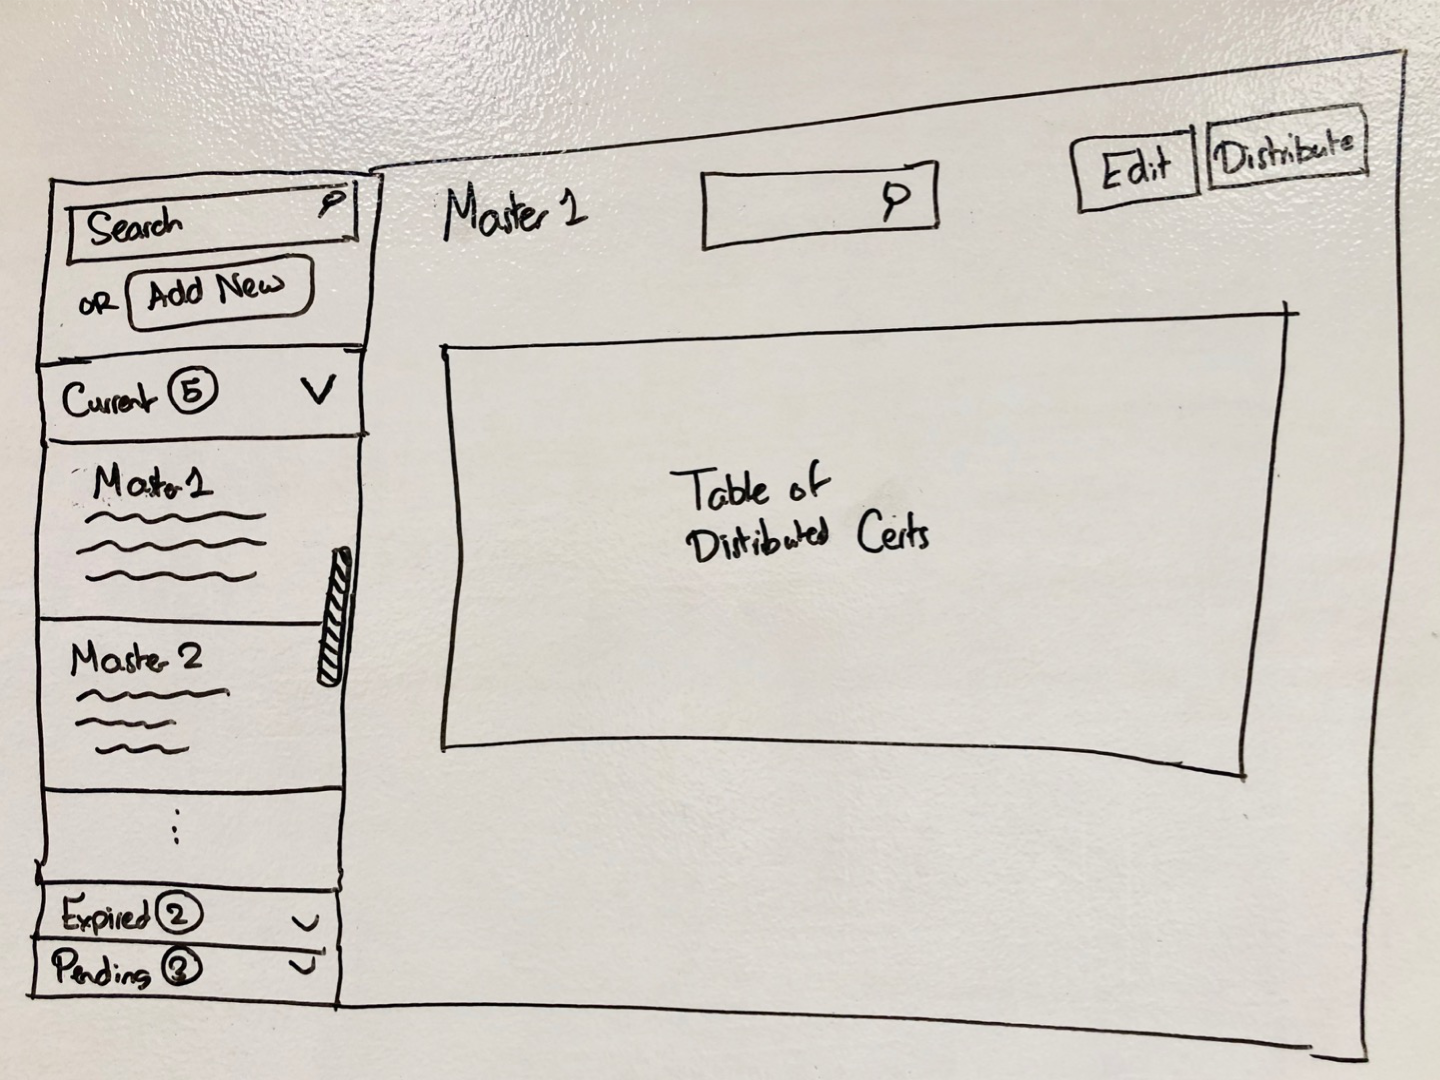 Search
OR Add New
Current 5
Master 1
Master 2
Expired 2
Pending 3
Master 1
Edit
Distribute
Table of
Distibuted Certs